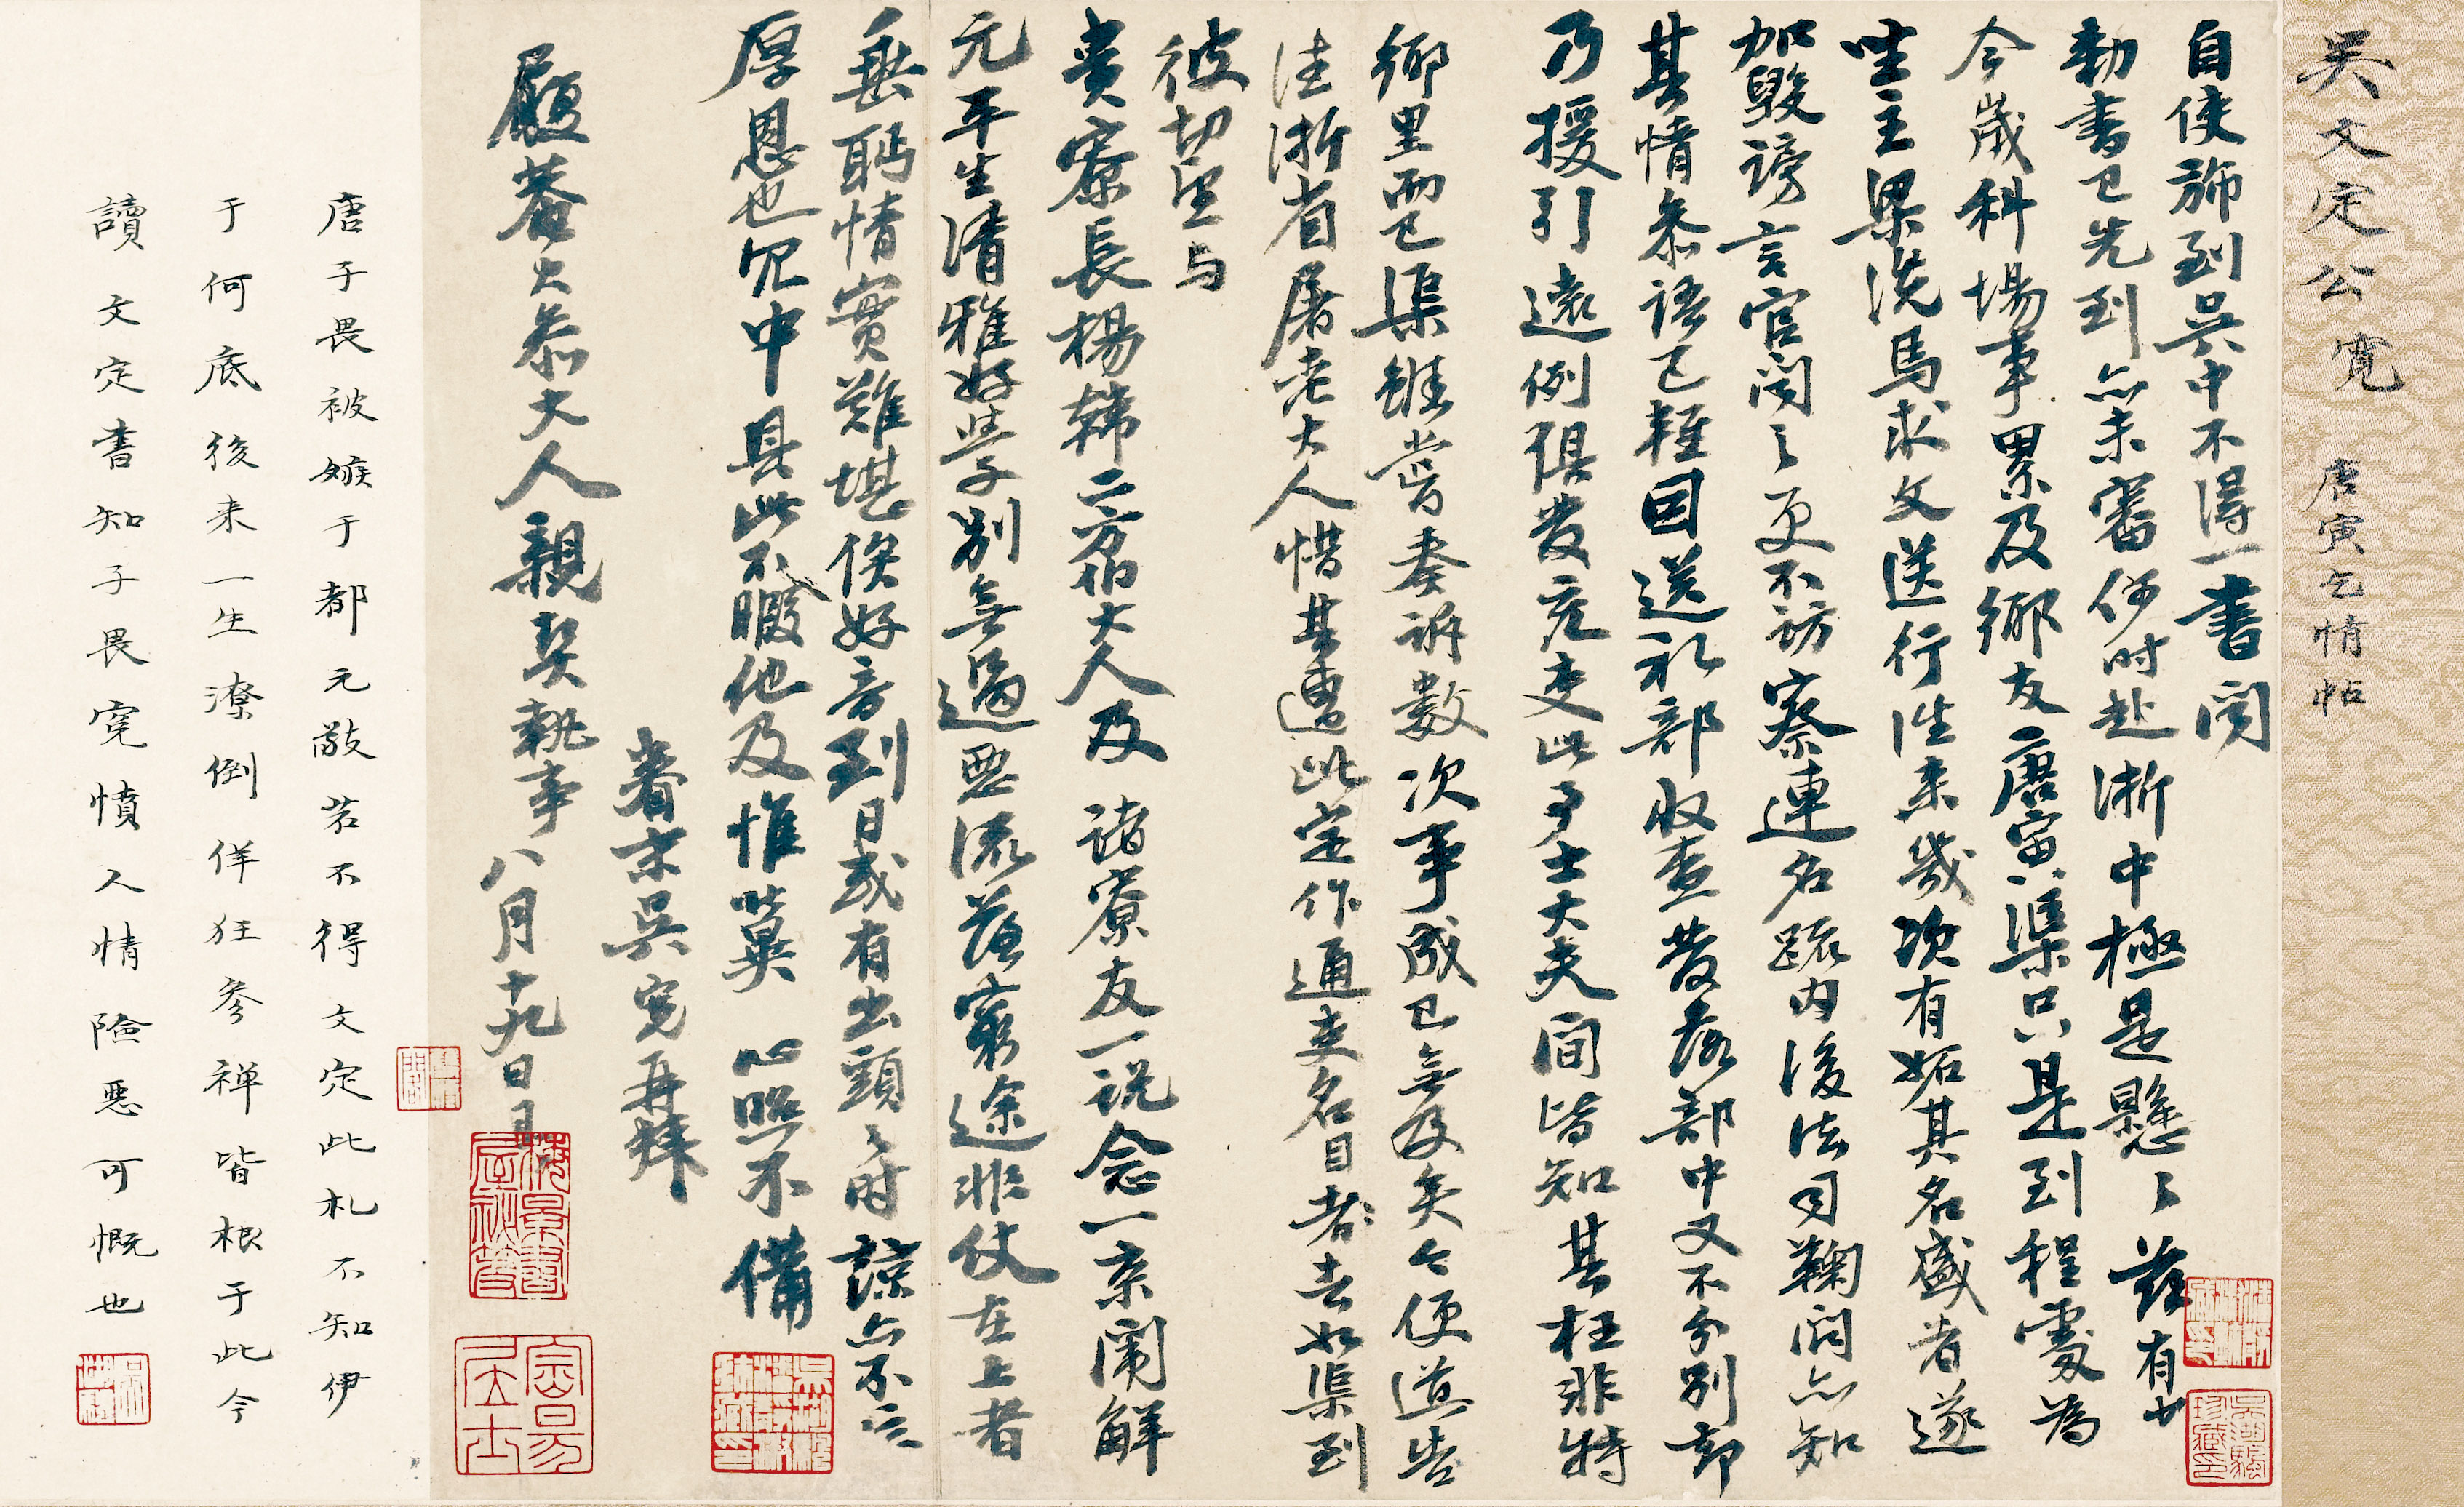 吳文定公寬 唐寅乞情帖
自使旆到吳中不得一書閱
勑書已先到亦未審何时赴浙中極是懸々茲有少
今歲科場事累及鄉友唐寅渠只是到程處為
坐主梁洗馬求文送行往來幾次有妬其名盛者遂
加毀謗言官聞之更不訪察連名疏內後法司鞫問亦知
其情叅語已輕因送礼部收查發落部中又不分別却
乃援引遠例俱發充吏此事士大夫間皆知其枉非特
鄉里而已渠雖嘗奏訴數次事成已無及矣今便道告
往浙省屠老大人惜其遭此定作通吏名目者去如渠到
彼切望与
貴寮長楊韓二方伯大人及 諸寮友一說念一京闈解
元平生清雅好學別無過惡流落窮途非仗在上者
垂眄情實難堪俟好音到日或有出頭之时諒亦不忘
厚恩也冗中具此不暇他及惟冀 心照不備
眷末吳寬再拜
履菴大叅大人親契執事 八月十九日具
唐子畏被嫉于都元敬若不得文定此札不知伊
于何底後来一生潦倒佯狂參禅皆根于此今
讀文定書知子畏寃憤人情險惡可慨也